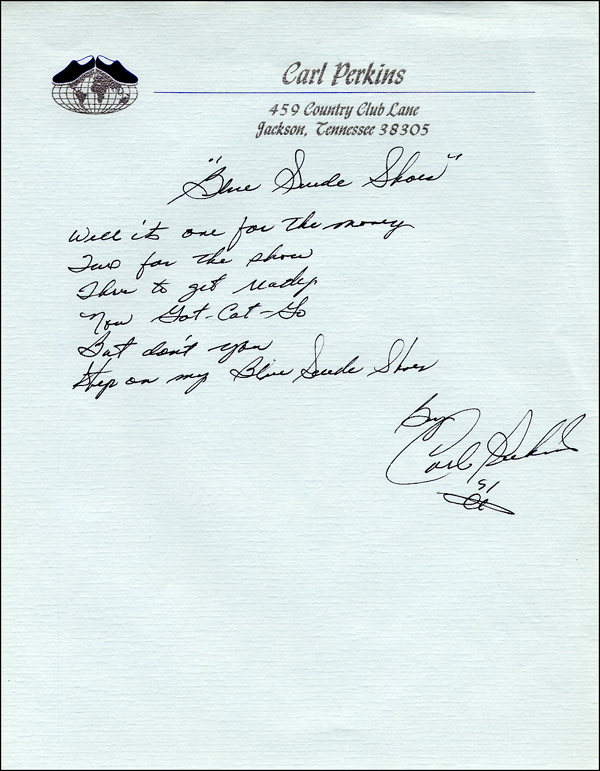 Carl Perkins
459 Country Club Lane
Jackson, Tennessee 38305
"Blue Suede Shoes"
Well it's one for the money
Two for the show
Three to get ready
Now Got-Cat-Go
But don't you
Step on my Blue Suede Shoes
by
Carl Perkins
'91